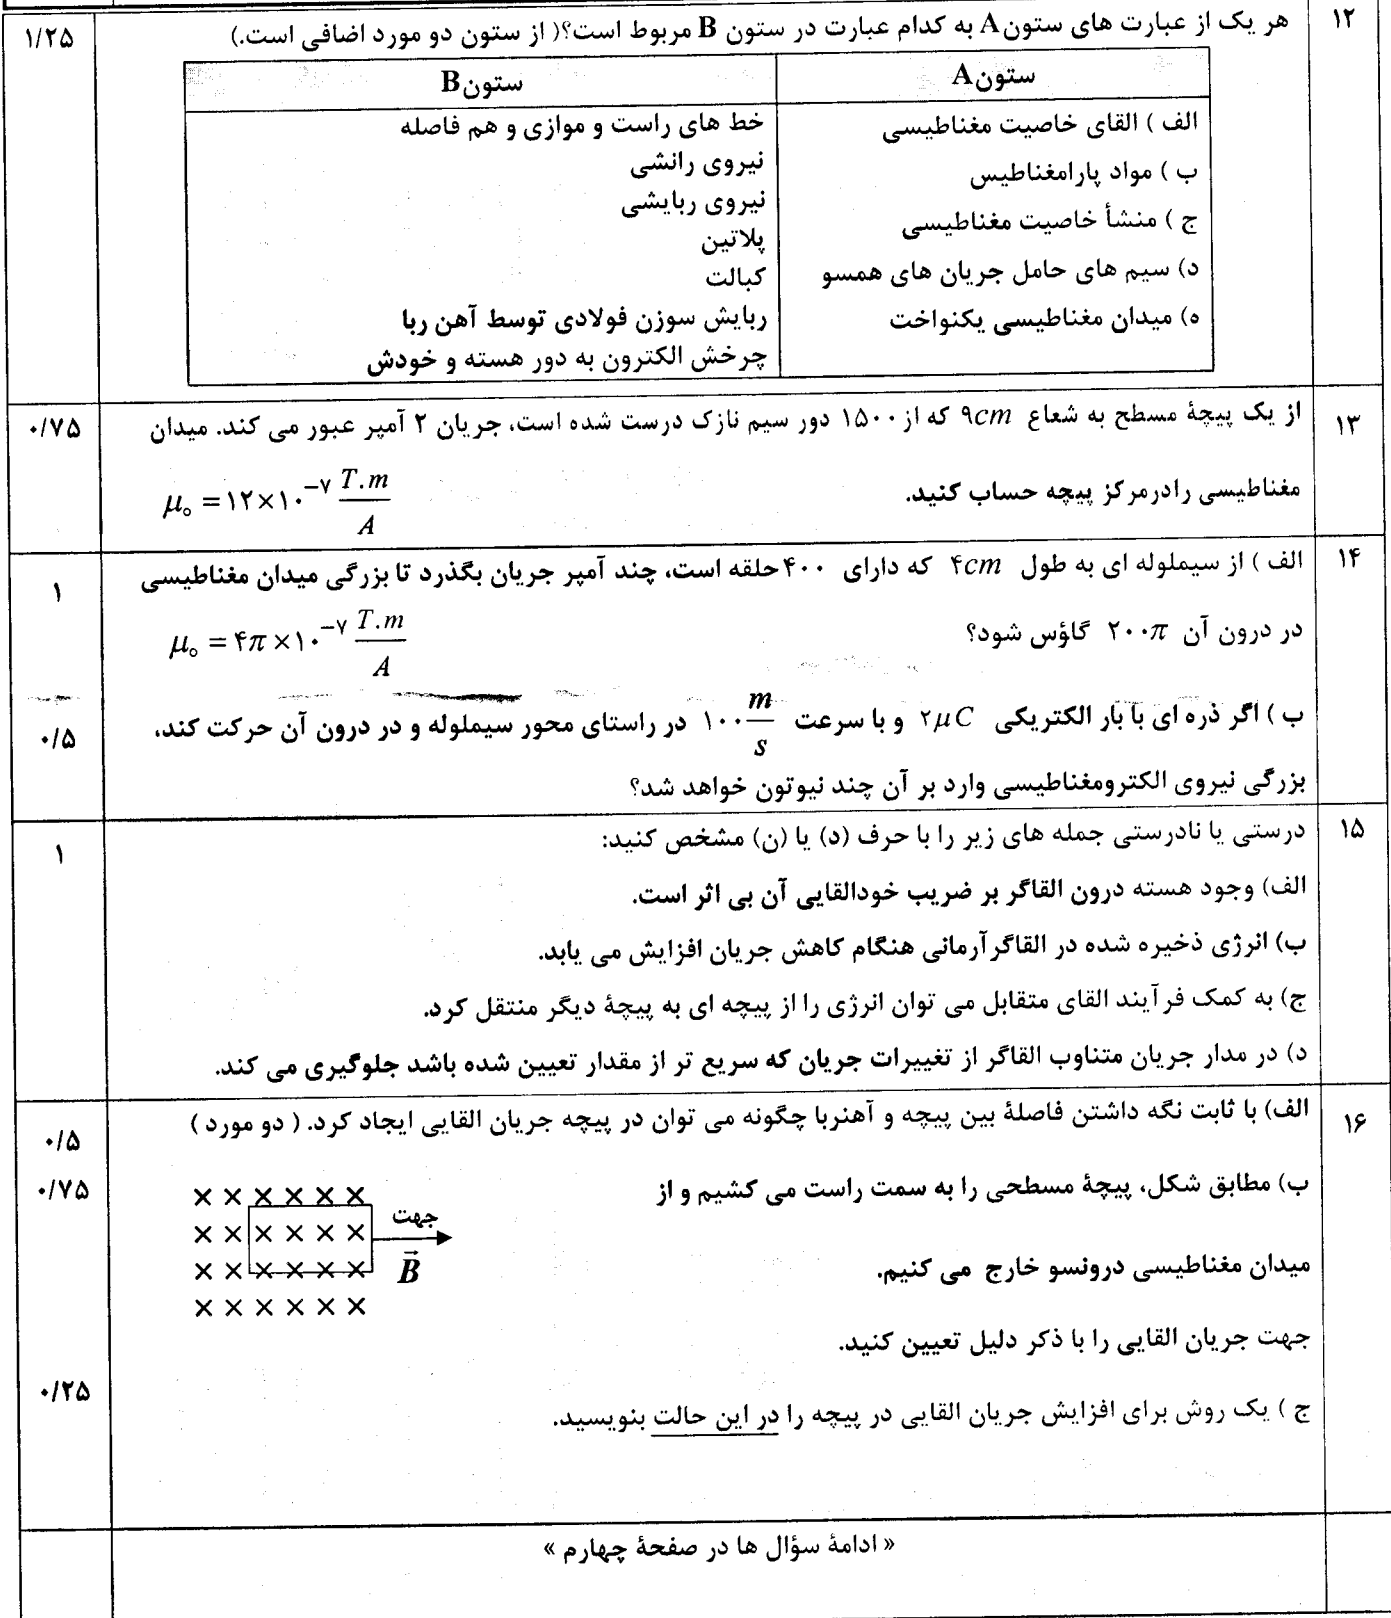 ۱۲
هر یک از عبارت های ستون A به کدام عبارت در ستون B مربوط است؟( از ستون دو مورد اضافی است.)
۱/۲۵
ستون A
ستون B
الف ) القای خاصیت مغناطیسی
ب ) مواد پارامغناطیس
ج ) منشأ خاصیت مغناطیسی
د) سیم های حامل جریان های همسو
ه) میدان مغناطیسی یکنواخت
خط های راست و موازی و هم فاصله
نیروی رانشی
نیروی ربایشی
پلاتین
کبالت
ربایش سوزن فولادی توسط آهن ربا
چرخش الکترون به دور هسته و خودش
۱۳
از یک پیچهٔ مسطح به شعاع ۹cm که از ۱۵۰۰ دور سیم نازک درست شده است، جریان ۲ آمپر عبور می کند. میدان
۰/۷۵
مغناطیسی رادرمرکز پیچه حساب کنید. μ₀ = ۱۲×۱۰⁻⁷ T.m/A
۱۴
الف ) از سیملوله ای به طول ۴cm که دارای ۴۰۰ حلقه است، چند آمپر جریان بگذرد تا بزرگی میدان مغناطیسی
۱
در درون آن ۲۰۰π گاؤس شود؟ μ₀ = ۴π×۱۰⁻⁷ T.m/A
ب ) اگر ذره ای با بار الکتریکی ۲μC و با سرعت ۱۰۰ m/s در راستای محور سیملوله و در درون آن حرکت کند،
۰/۵
بزرگی نیروی الکترومغناطیسی وارد بر آن چند نیوتون خواهد شد؟
۱۵
درستی یا نادرستی جمله های زیر را با حرف (د) یا (ن) مشخص کنید:
۱
الف) وجود هسته درون القاگر بر ضریب خودالقایی آن بی اثر است.
ب) انرژی ذخیره شده در القاگرآرمانی هنگام کاهش جریان افزایش می یابد.
ج) به کمک فرآیند القای متقابل می توان انرژی را از پیچه ای به پیچهٔ دیگر منتقل کرد.
د) در مدار جریان متناوب القاگر از تغییرات جریان که سریع تر از مقدار تعیین شده باشد جلوگیری می کند.
۱۶
الف) با ثابت نگه داشتن فاصلهٔ بین پیچه و آهنربا چگونه می توان در پیچه جریان القایی ایجاد کرد. ( دو مورد )
۰/۵
ب) مطابق شکل، پیچهٔ مسطحی را به سمت راست می کشیم و از
۰/۷۵
× × × × × ×
× × × × × × جهت
× × × × × × B⃗
× × × × × ×
میدان مغناطیسی درونسو خارج می کنیم.
جهت جریان القایی را با ذکر دلیل تعیین کنید.
ج ) یک روش برای افزایش جریان القایی در پیچه را در این حالت بنویسید.
۰/۲۵
« ادامهٔ سؤال ها در صفحهٔ چهارم »